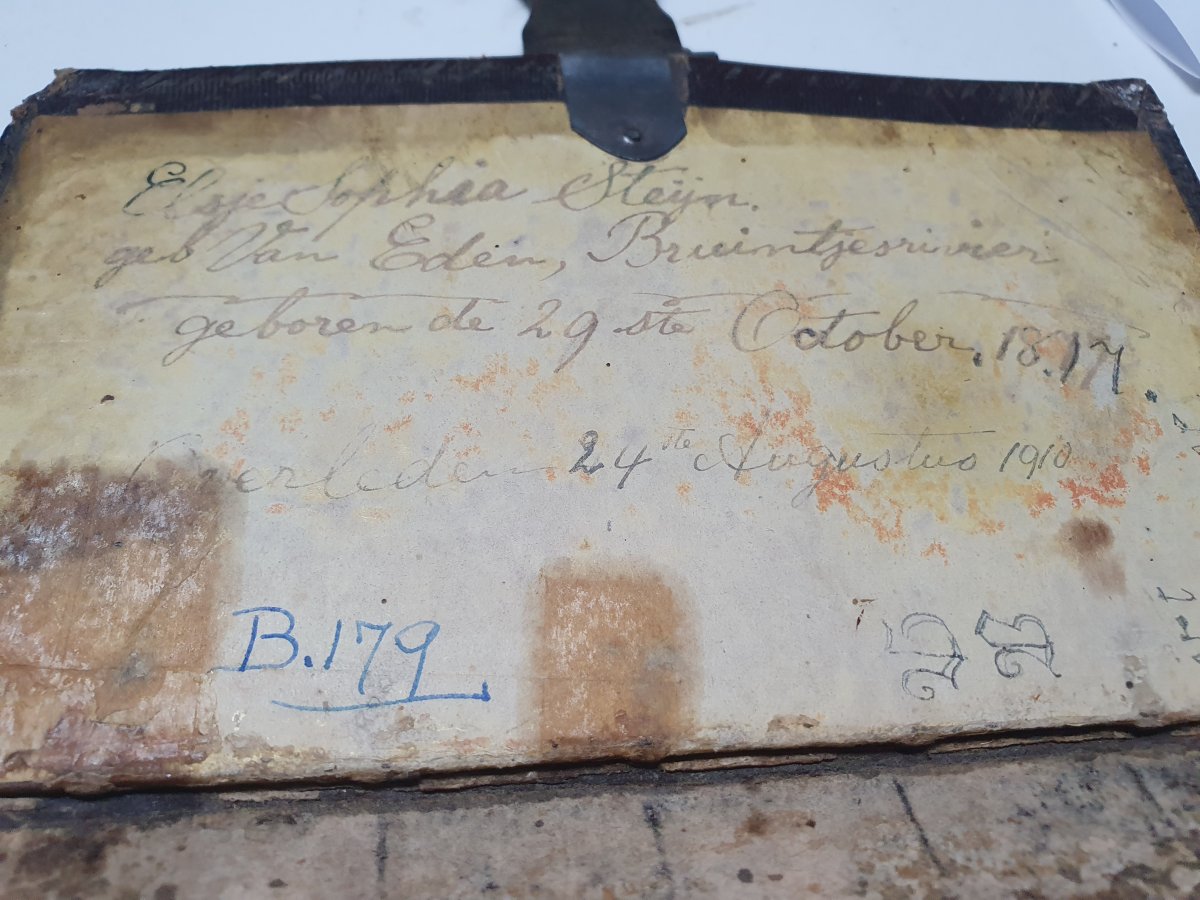 Elsje Sophia Steijn.
geb Van Eden, Bruintjesrivier
geboren de 29 ste October, 18.17.
Overleden 24 ste Augustus 1910
B.179